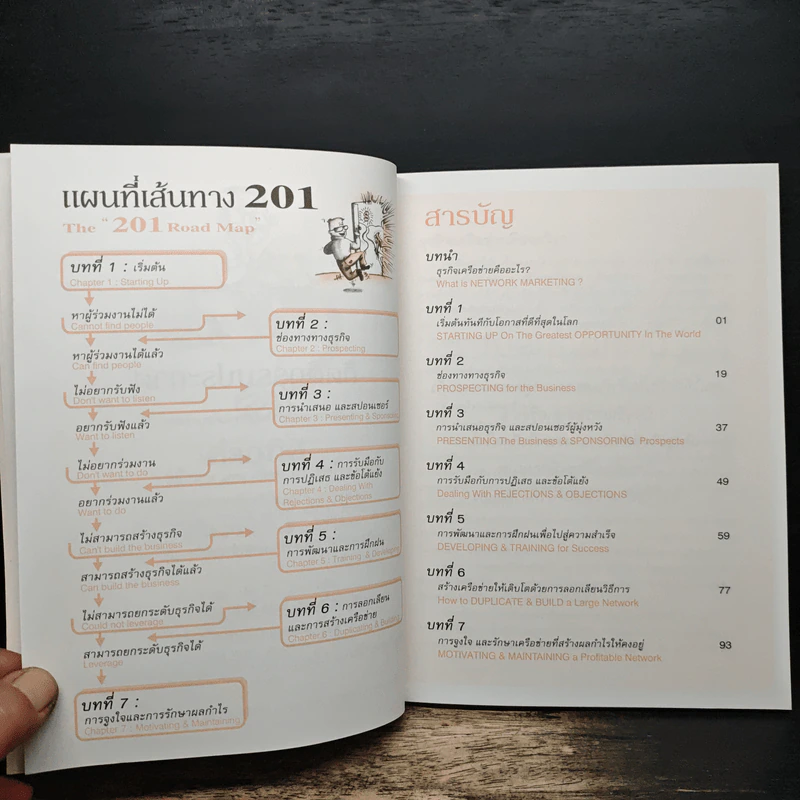 แผนที่เส้นทาง 201
The "201 Road Map"
บทที่ 1 : เริ่มต้น
Chapter 1 : Starting Up
หาผู้ร่วมงานไม่ได้
Cannot find people
บทที่ 2 :
ช่องทางทางธุรกิจ
Chapter 2 : Prospecting
หาผู้ร่วมงานได้แล้ว
Can find people
ไม่อยากรับฟัง
Don't want to listen
บทที่ 3 :
การนำเสนอ และสปอนเซอร์
Chapter 3 : Presenting &
อยากรับฟังแล้ว
Want to listen
ไม่อยากร่วมงาน
Don't want to do
บทที่ 4 : การรับมือกับ
การปฏิเสธ และข้อโต้แย้ง
Chapter 4 : Dealing With
Rejections & Objections
อยากร่วมงานแล้ว
Want to do
ไม่สามารถสร้างธุรกิจ
Can't build the business
บทที่ 5 :
การพัฒนาและการฝึกฝน
Chapter 5 : Training &
สามารถสร้างธุรกิจได้แล้ว
Can build the business
ไม่สามารถยกระดับธุรกิจได้
Could not leverage
บทที่ 6 : การลอกเลียน
และการสร้างเครือข่าย
Chapter 6 : Duplicating &
สามารถยกระดับธุรกิจได้
Leverage
บทที่ 7 :
การจูงใจและการรักษาผลกำไร
Chapter 7 : Motivating & Maintaining
สารบัญ
บทนำ
ธุรกิจเครือข่ายคืออะไร?
What is NETWORK MARKETING ?
บทที่ 1
เริ่มต้นทันทีกับโอกาสที่ดีที่สุดในโลก 01
STARTING UP On The Greatest OPPORTUNITY In The World
บทที่ 2
ช่องทางทางธุรกิจ 19
PROSPECTING for the Business
บทที่ 3
การนำเสนอธุรกิจ และสปอนเซอร์ผู้มุ่งหวัง 37
PRESENTING The Business & SPONSORING Prospects
บทที่ 4
การรับมือกับการปฏิเสธ และข้อโต้แย้ง 49
Dealing With REJECTIONS & OBJECTIONS
บทที่ 5
การพัฒนาและการฝึกฝนเพื่อไปสู่ความสำเร็จ 59
DEVELOPING & TRAINING for Success
บทที่ 6
สร้างเครือข่ายให้เติบโตด้วยการลอกเลียนวิธีการ 77
How to DUPLICATE & BUILD a Large Network
บทที่ 7
การจูงใจ และรักษาเครือข่ายที่สร้างผลกำไรให้คงอยู่ 93
MOTIVATING & MAINTAINING a Profitable Network